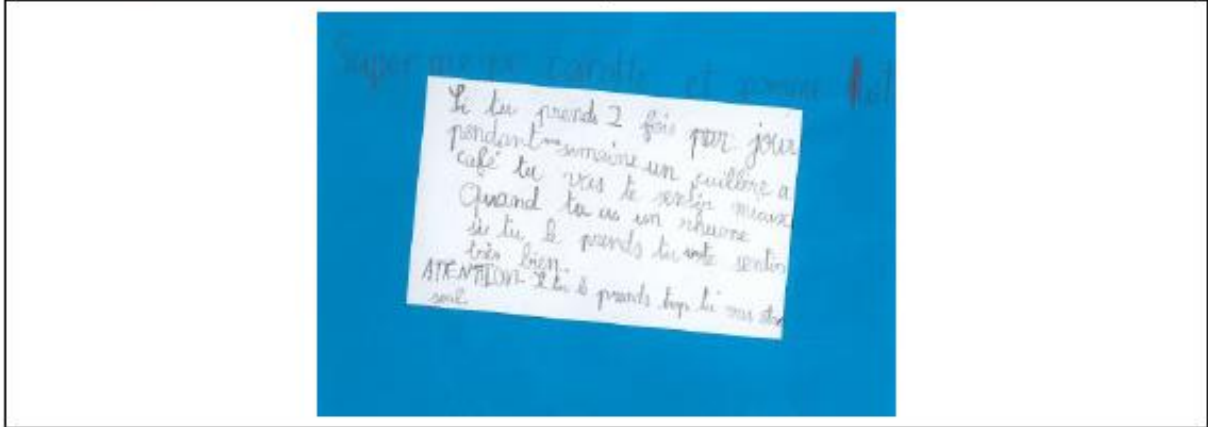 Super carotte et pomme
Si tu prends 2 fois par jour
pendant une semaine un cuillère a
café tu vas te sentir mieux
Quand tu as un rhume
si tu le prends tu vas te sentir
très bien.
ATENTION si tu le prends trop tu vas être
seul